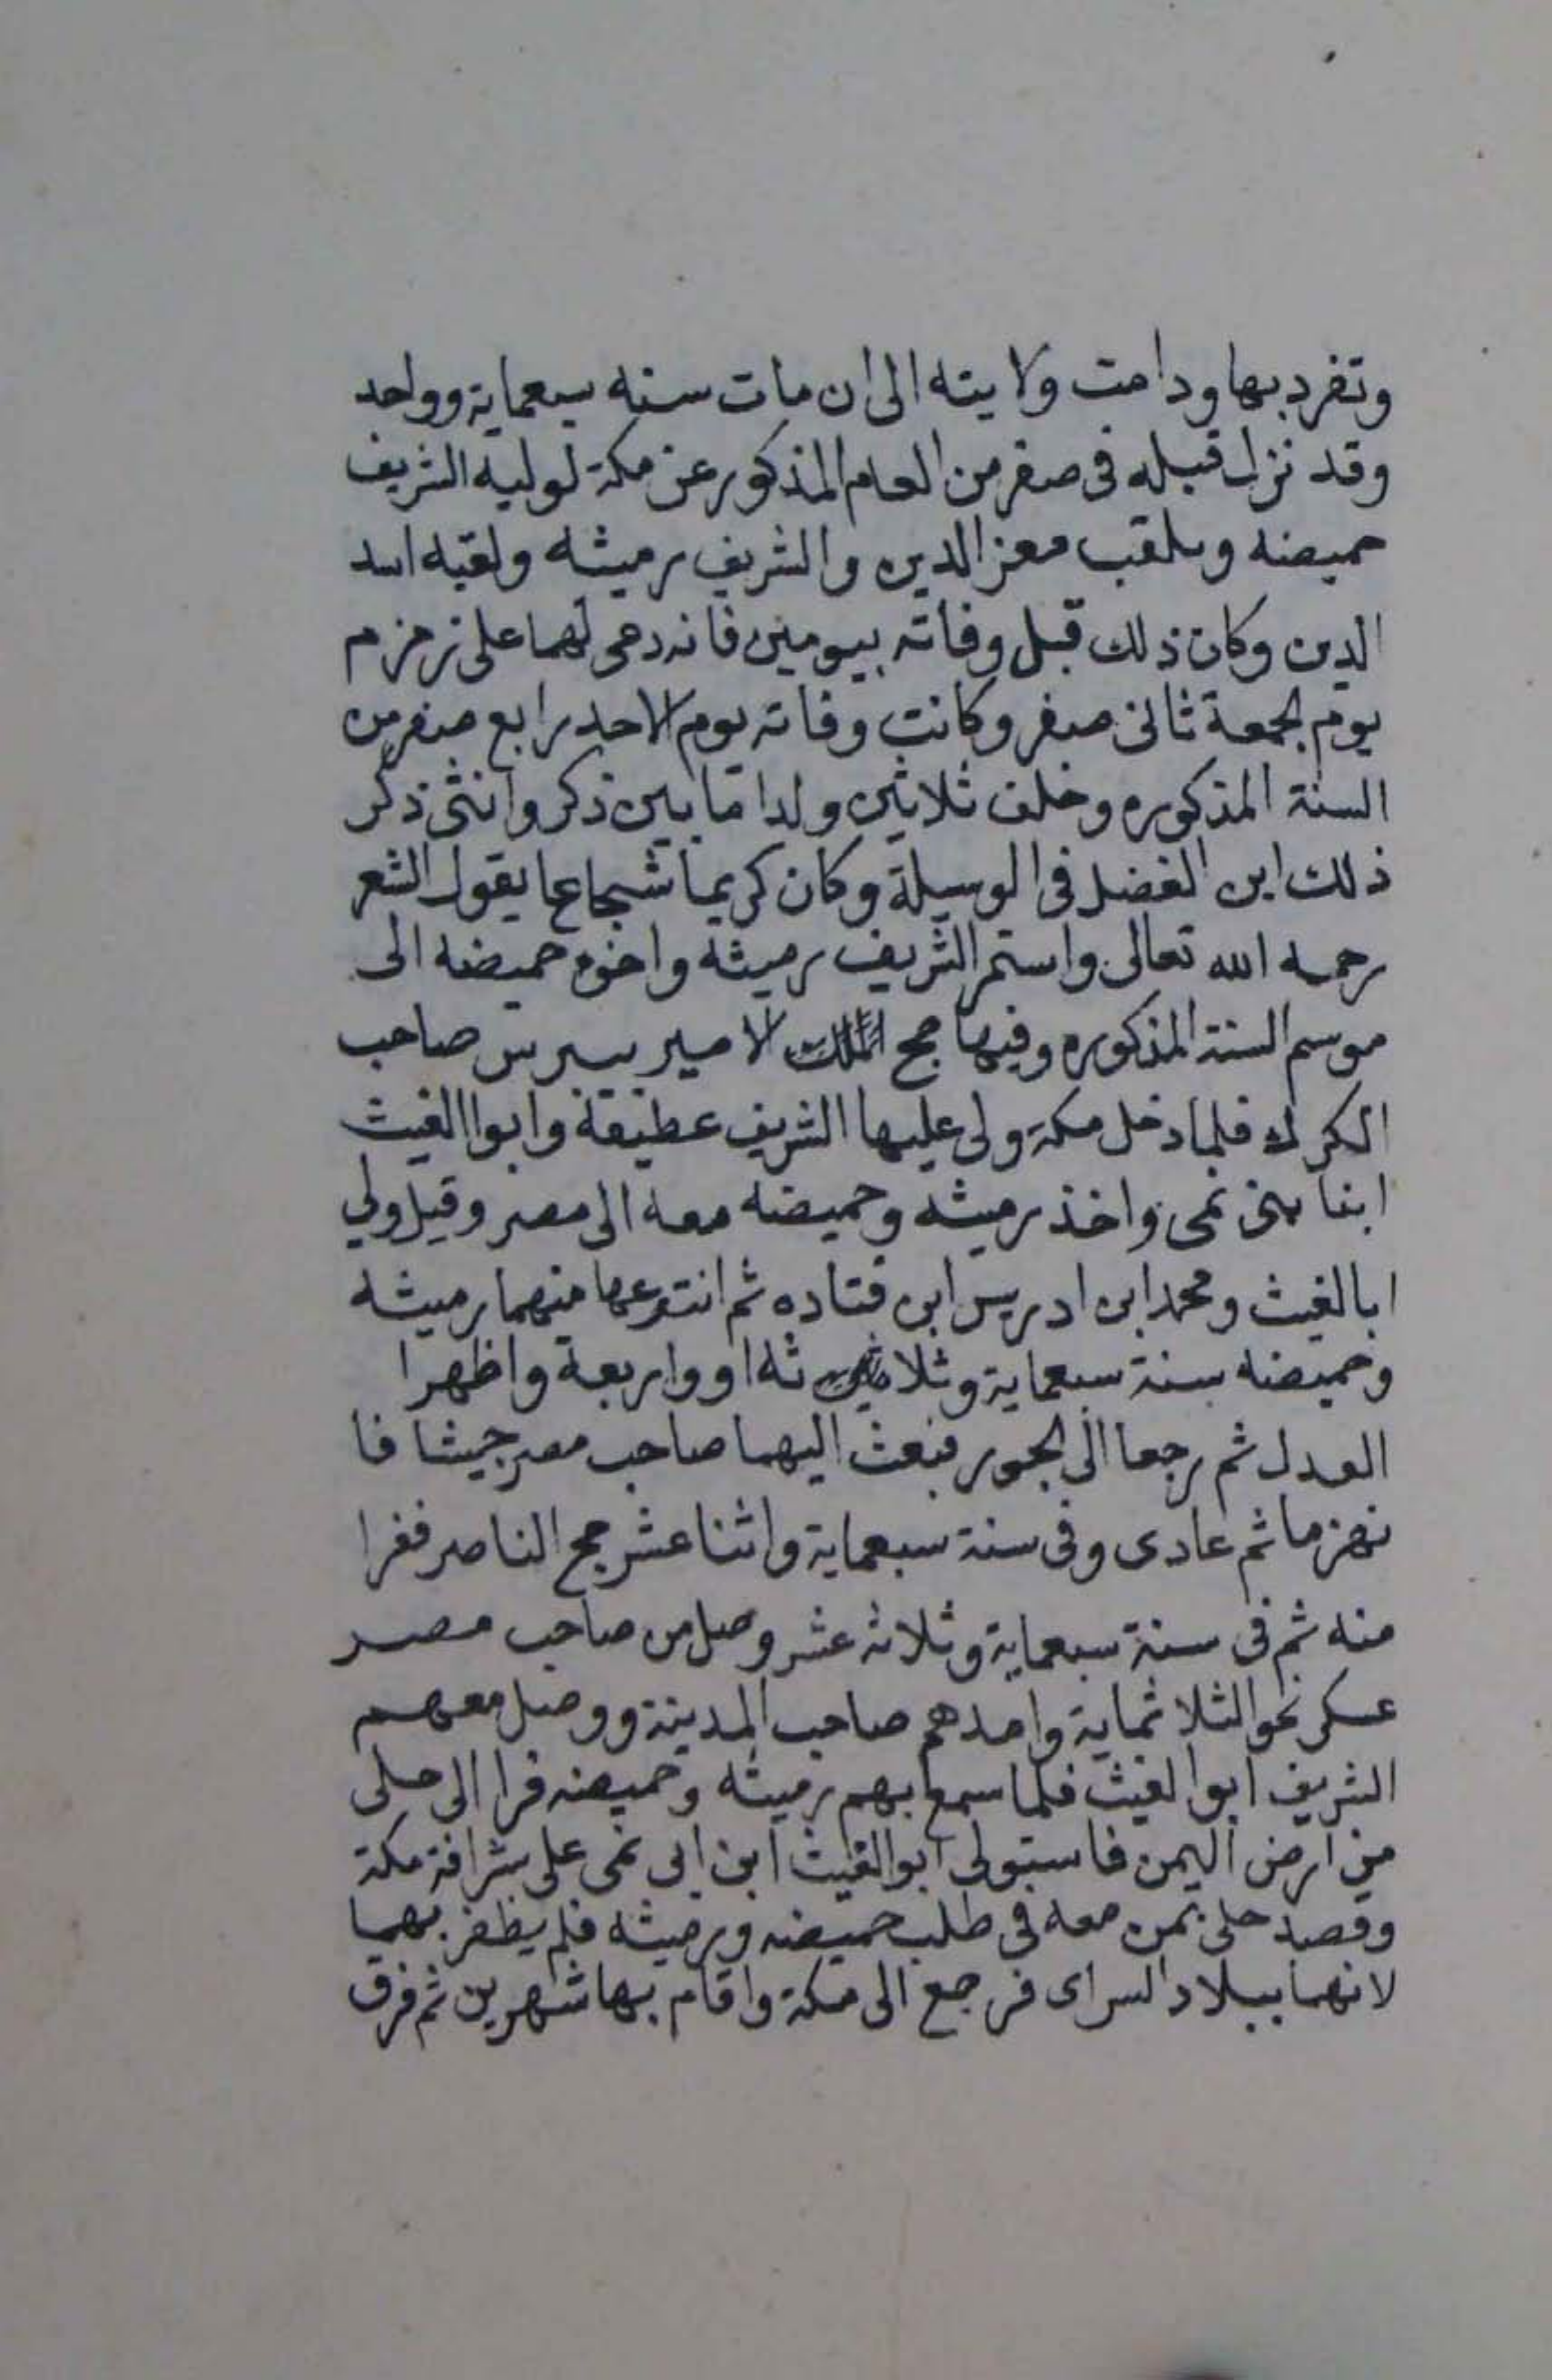 وتفرد بها ودامت ولايته الى ان مات سنه سبعماية وواحد
وقد نزل قبله فى صفر من العام المذكور عن مكة لوليه الشريف
حميضه ويلقب معز الدين والشريف رميثه ولقبه اسد
الدين وكان ذلك قبل وفاته بيومين فانه دعى لهما على زمزم
يوم الجمعة ثانى صفر وكانت وفاته يوم الاحد رابع صفر من
السنة المذكوره وخلف ثلاثين ولدا ما بين ذكر وانثى ذكر
ذلك ابن الفضل فى الوسيلة وكان كريما شجاعا يقول الشعر
رحمه الله تعالى واستمر الشريف رميثه واخوه حميضه الى
موسم السنة المذكوره وفيها حج الملك الامير بيبرس صاحب
الكرك فلما دخل مكة ولى عليها الشريف عطيفة وابوا الغيث
ابنا بنى نمى واخذ رميثه وحميضه معه الى مصر وقيل ولي
ابا لغيث ومحمد ابن ادريس ابن قتاده ثم انتزعها منهما رميثه
وحميضه سنة سبعماية وثلاثه او واربعة واظهرا
العدل ثم رجعا الى الجور فبعث اليهما صاحب مصر جيشا فا
نهزما ثم عادى وفى سنة سبعماية واثنا عشر حج الناصر ففرا
منه ثم فى سنة سبعماية وثلاثه عشر وصل من صاحب مصر
عسكر نحو الثلاثماية وامدهم صاحب المدينة ووصل معهم
الشريف ابوا لغيث فلما سمع بهم رميثه وحميضه فرا الى حلى
من ارض اليمن فاستولى ابوا لغيث ابن ابى نمى على شرافة مكة
وقصد حلى بمن معه فى طلب حميضه ورميثه فلم يظفر بهما
لانهما ببلاد السراى فرجع الى مكة واقام بها شهرين ثم فرق